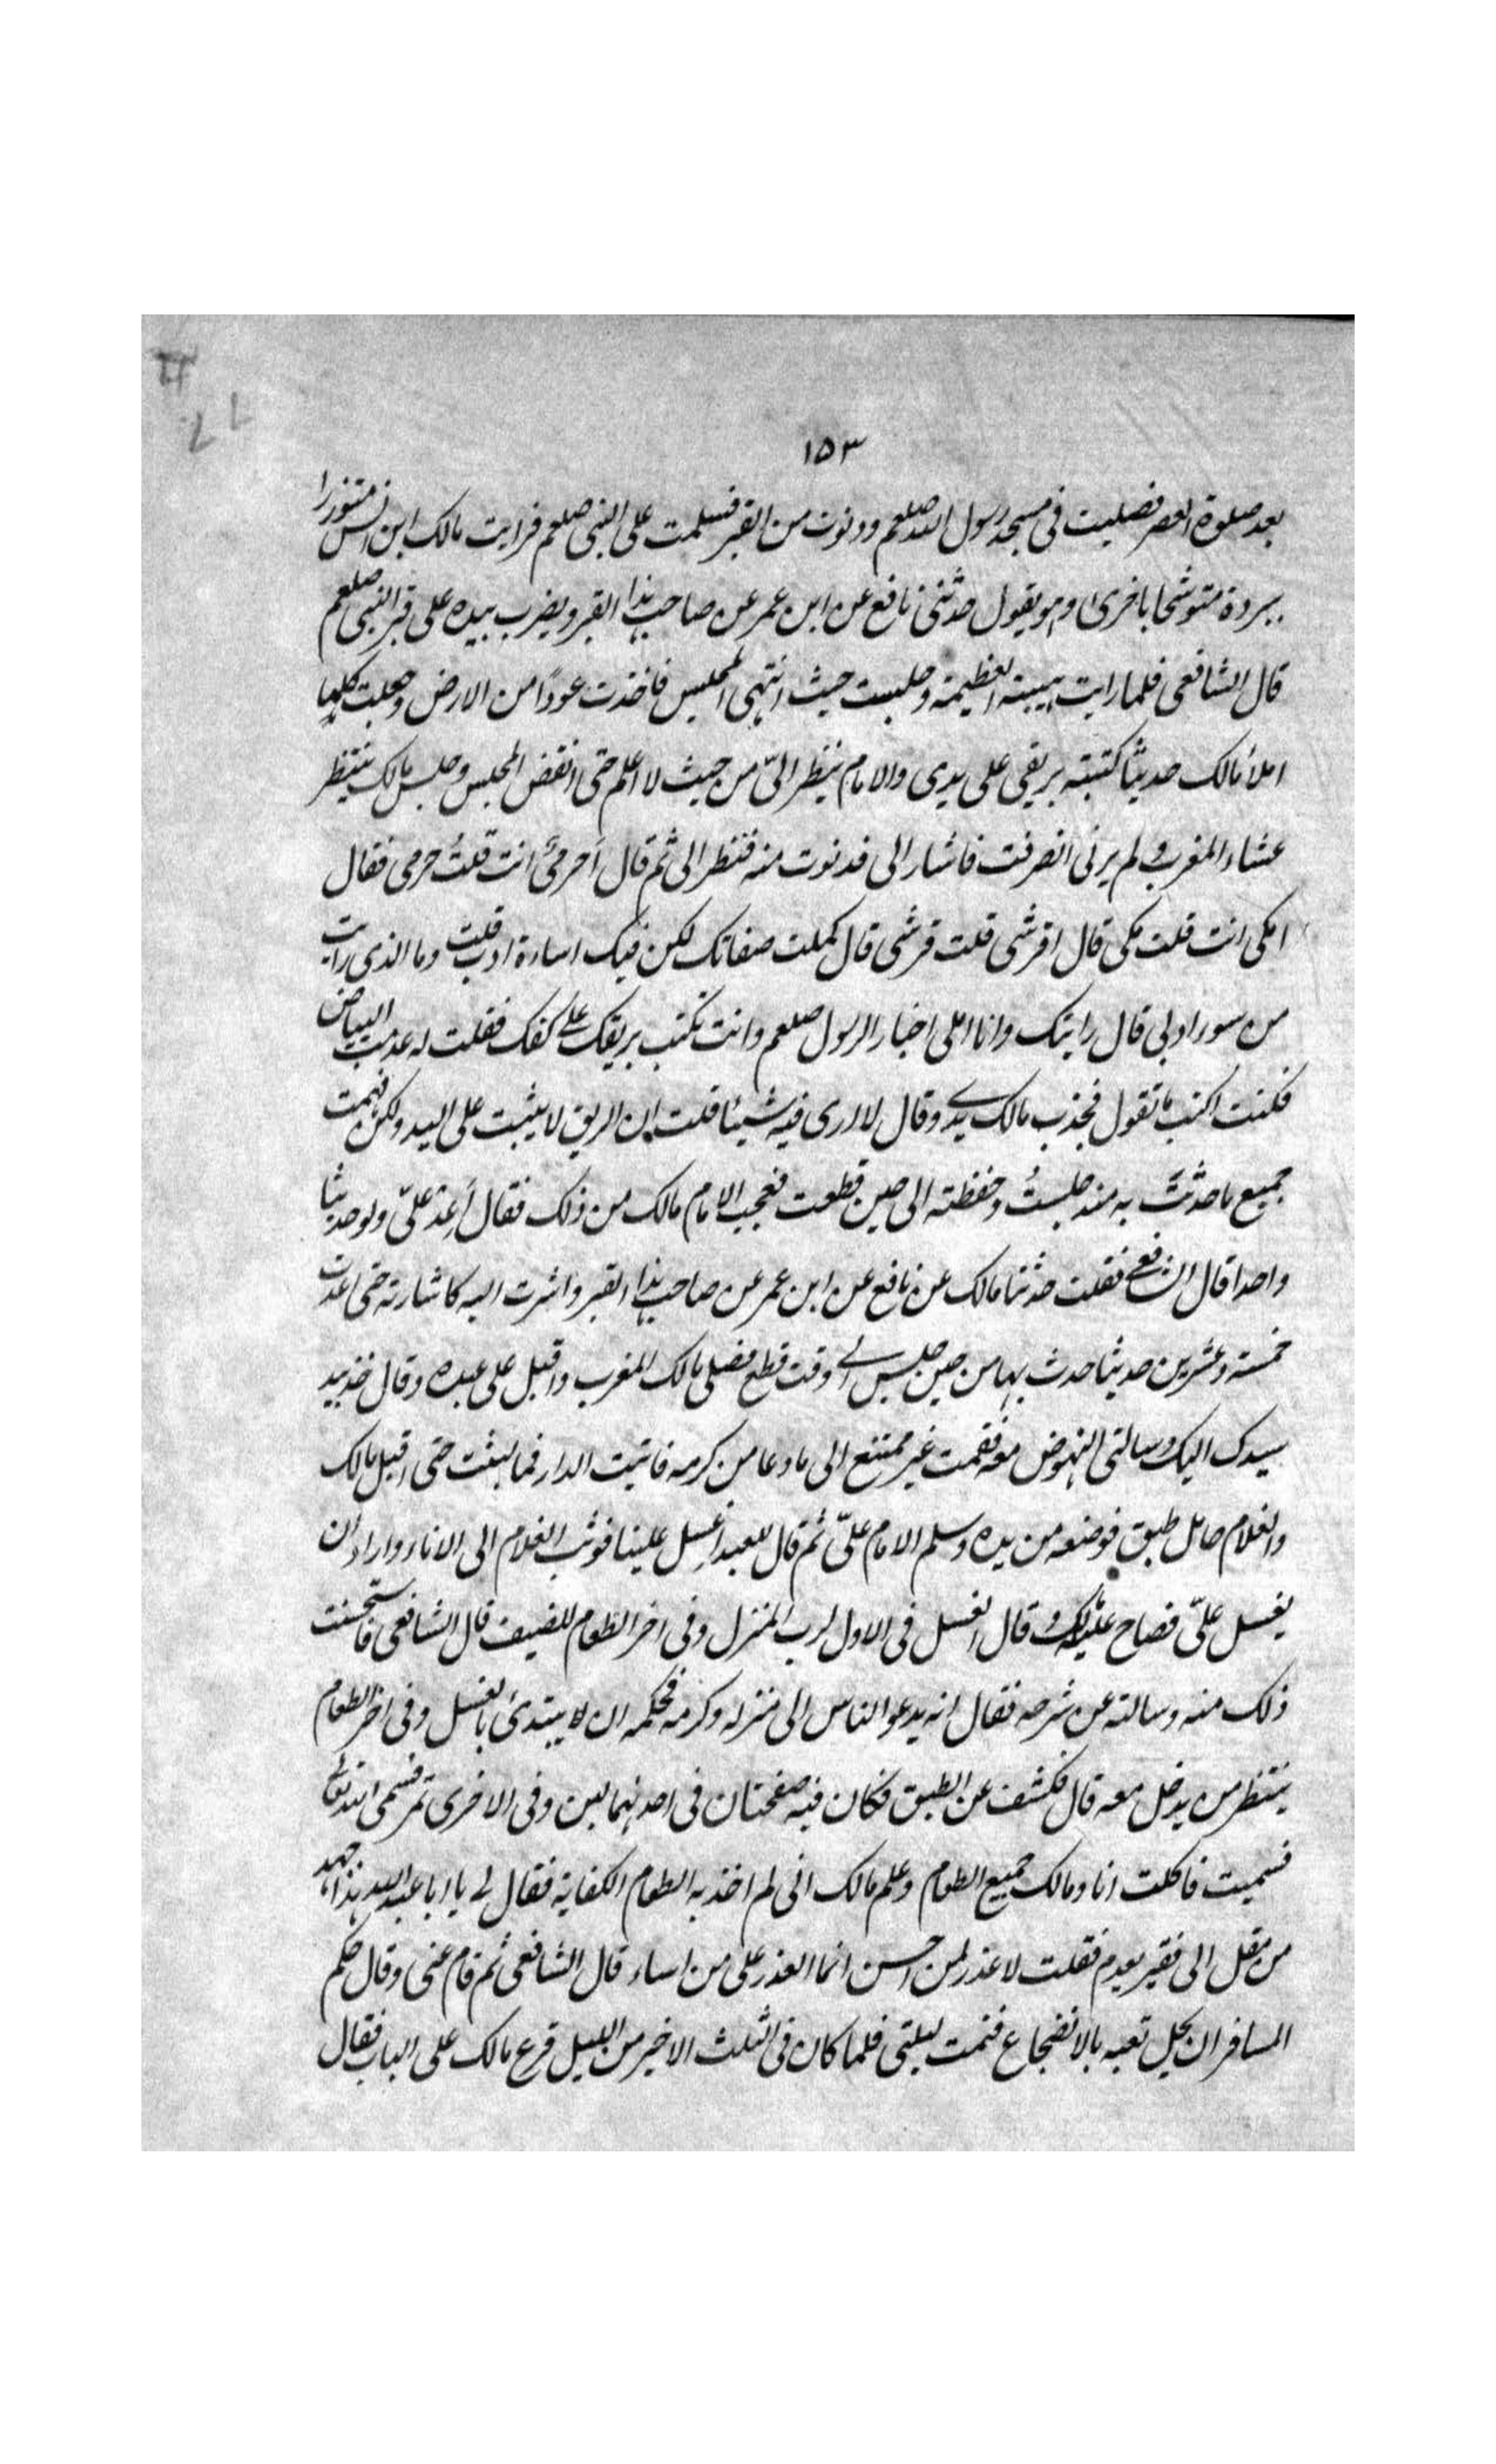 ١٥٣
بعد صلوة العصر فصليت فى مسجد رسول الله صلعم ودنوت من القبر فسلمت على النبى صلعم فرايت مالك ابن انس متزرا
ببردة متوشحا باخرى وهو يقول حدثنى نافع عن ابن عمر عن صاحب هذا القبر ويضرب بيده على قبر النبى صلعم
قال الشافعى فلما رايت هيبته العظيمة وجلست حيث انتهى المجلس فاخذت عودًا من الارض وجعلت كلما
املأ مالك حديثا كتبته بريقى على يدى والامام ينظر الىّ من حيث لا اعلم حتى انقض المجلس وجلس مالك ينتظر
عشاء المغرب ولم يرنى انصرفت فاشار الى فدنوت منه فنظر الى ثم قال أحرمىٌّ انت قلتُ حرمى فقال
امكى انت قلت مكى قال اقرشى قلت قرشى قال كملت صفاتك لكن فيك اساءة ادب قلت وما الذى رايت
من سور ادبى قال رايتك وانا املى اخبار الرسول صلعم وانت تكتب بريقك على كفك فقلت له عدمت البياض
فكنت اكتب ما تقول فجذب مالك يدے وقال لا ارى فيه شيئا قلت ان الريق لا يثبت على اليد ولكن فهمت
جميع ما حدثتَ به منذ جلستُ وحفظته الى حين قطعت فعجب الامام مالك من ذلك فقال أعِد علىّ ولو حديثا
واحدا قال الشافعے فقلت حدثنا مالك عن نافع عن ابن عمر عن صاحب هذا القبر واشرت اليه كاشارته حتى اعدت
خمسة وعشرين حديثا حدث بها من حين جلس الے وقت قطع فصلى مالك المغرب واقبل على عبده وقال خذ بيد
سيدك اليك وسالنى النهوض معه فقمت غير ممتنع الى ما دعا من كرمه فاتيت الدار فما لبثت حتى اقبل مالك
والغلام حامل طبق فوضعه من يده وسلم الامام علىّ ثم قال للعبد اغسل علينا فوثب الغلام الى الاناء واراد ان
يغسل علىّ فصاح عليه مالك و قال الغسل فى الاول لرب المنزل وفى اخر الطعام للضيف قال الشافعى فاستحسنت
ذلك منه وسالته عن شرحه فقال انه يدعو الناس الى منزله وكرمه فحكمه ان لا يبتدئ بالغسل وفى اخر الطعام
ينتظر من يدخل معه قال فكشف عن الطبق فكان فيه صفحتان فى احدٰهما لبن وفى الاخرى تمر فسمى الله تعالى
فسميت فاكلت انا ومالك جميع الطعام وعلم مالك انى لم اخذ به الطعام الكفاية فقال لے يا ابا عبد الله هذا جهد
من مقل الى فقير يعدم فقلت لا عذر لمن احسن انما العذر على من اساء قال الشافعى ثم قام عنى وقال حكم
المسافر ان يحل تعبه بالانضجاع فنمت ليلتى فلما كان فى الثلث الاخير من الليل قرع مالك على الباب فقال